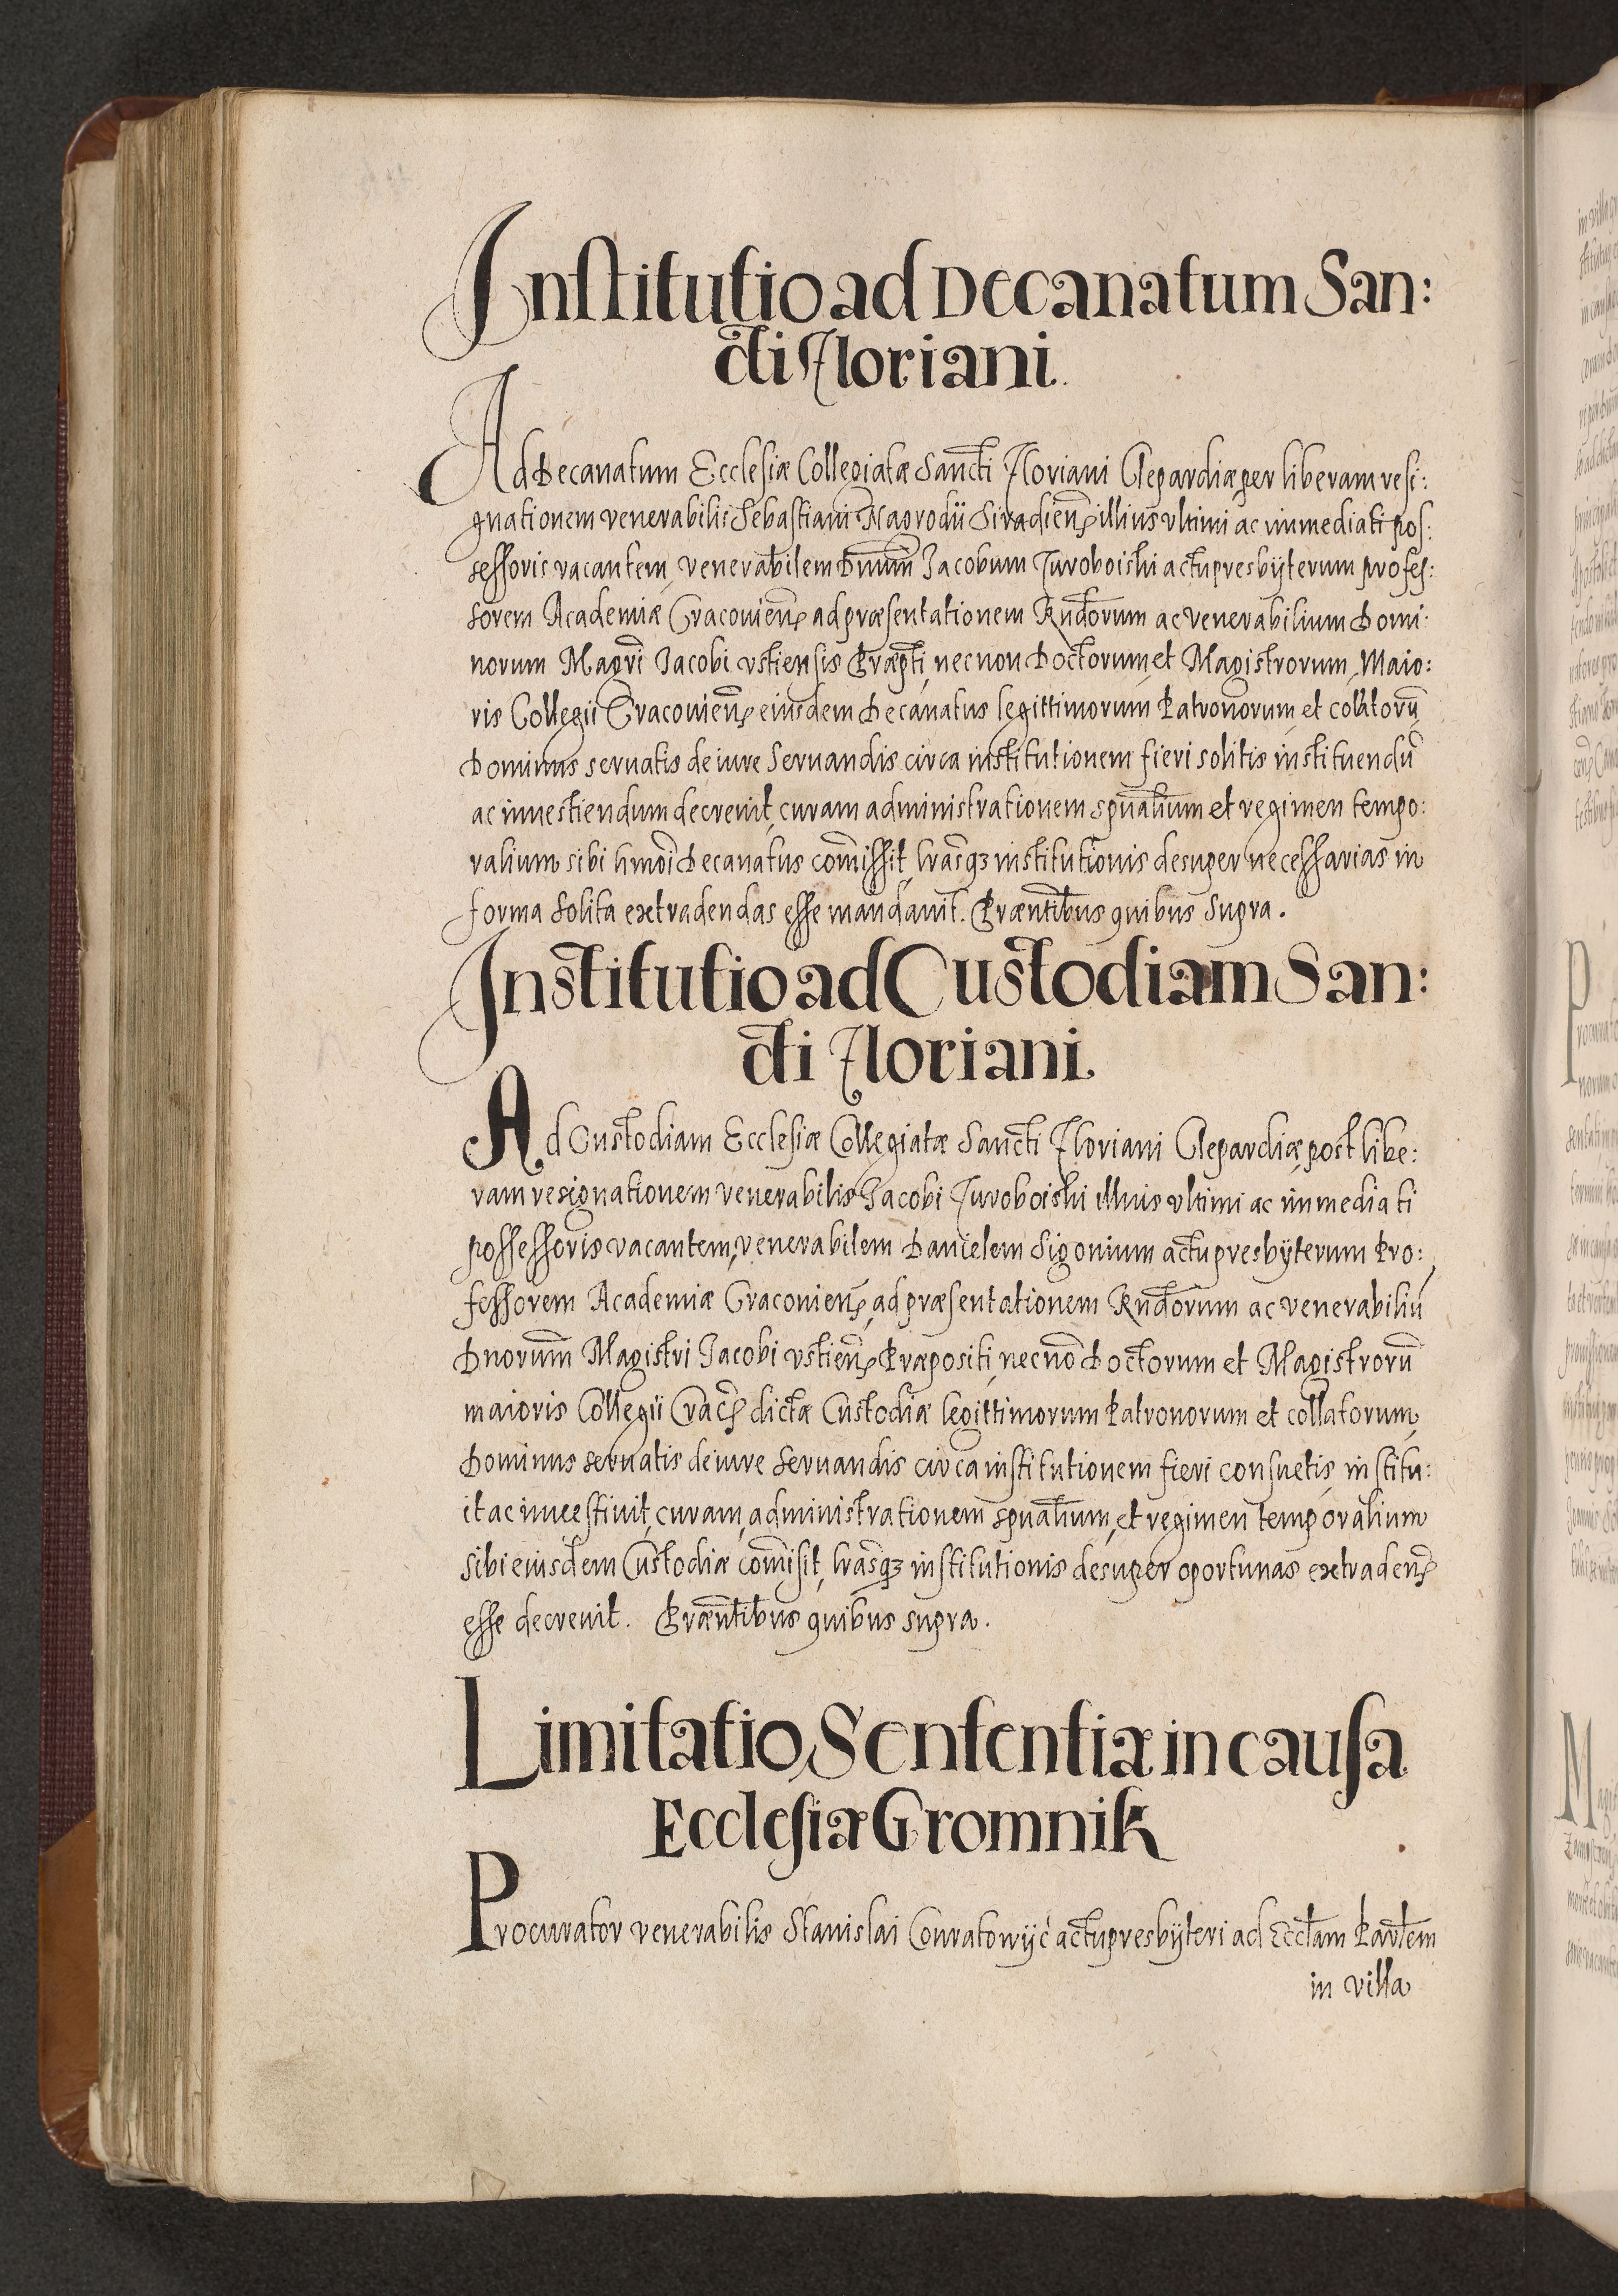 Institutio ad Decanatum San:
cti Floriani.
Ad Decanatum Ecclesiæ Collegiatæ Sancti Floriani Clepardiæ per liberam resi:
gnationem venerabilis Sebastiani Nagrodii Siradien̄ illius vltimi ac immediati pos:
sessoris vacantem, venerabilem Dnum̄ Jacobum Turoboiski actu presbÿterum profes:
sorem Academiæ Cracouien̄ ad præsentationem Rndorum ac venerabilium Domi:
norum Magri Jacobi vstiensis Præpti, necnon Doctorum et Magistrorum Maio:
ris Collegii Cracouien̄ eiusdem Decanatus legittimorum Patronorum et collatorū,
Dominus seruatis de iure Seruandis circa institutionem fieri solitis instituendū
ac inuestiendum decreuit, curam administrationem spūalium et regimen tempo:
ralium sibi hmōi Decanatus com̄issit, lrasq3 institutionis desuper necessarias in
forma Solita extradendas esse mandauit. Præntibus quibus Supra.
Institutio ad Custodiam San:
cti Floriani.
Ad Custodiam Ecclesiæ Collegiatæ Sancti Floriani Clepardiæ, post libe:
ram resignationem venerabilis Jacobi Turoboiski illius vltimi ac immediati
possessoris vacantem, venerabilem Danielem Sigonium actu presbÿterum Pro:
fessorem Academiæ Cracouien̄, ad præsentationem Rndorum ac venerabiliū
Dnorum̄ Magistri Jacobi vstien̄ Præpositi, necnō Doctorum et Magistrorū
maioris Collegii Crac̄ dictæ Custodiæ legittimorum Patronorum et collatorum,
Dominus seruatis de iure Seruandis circa institutionem fieri consuetis, institu:
it ac inuestiuit, curam, administrationem spūalium, et regimen temporalium
Sibi eiusdem Custodiæ com̄isit, lrasq3 institutionis desuper oportunas extraden̄
esse decreuit. Præntibus quibus supra.
Limitatio Sententiæ in causa
Ecclesiæ Gromnik
Procurator venerabilis Stanislai Conratowÿc actu presbÿteri ad Ecclam Parlem
in villa